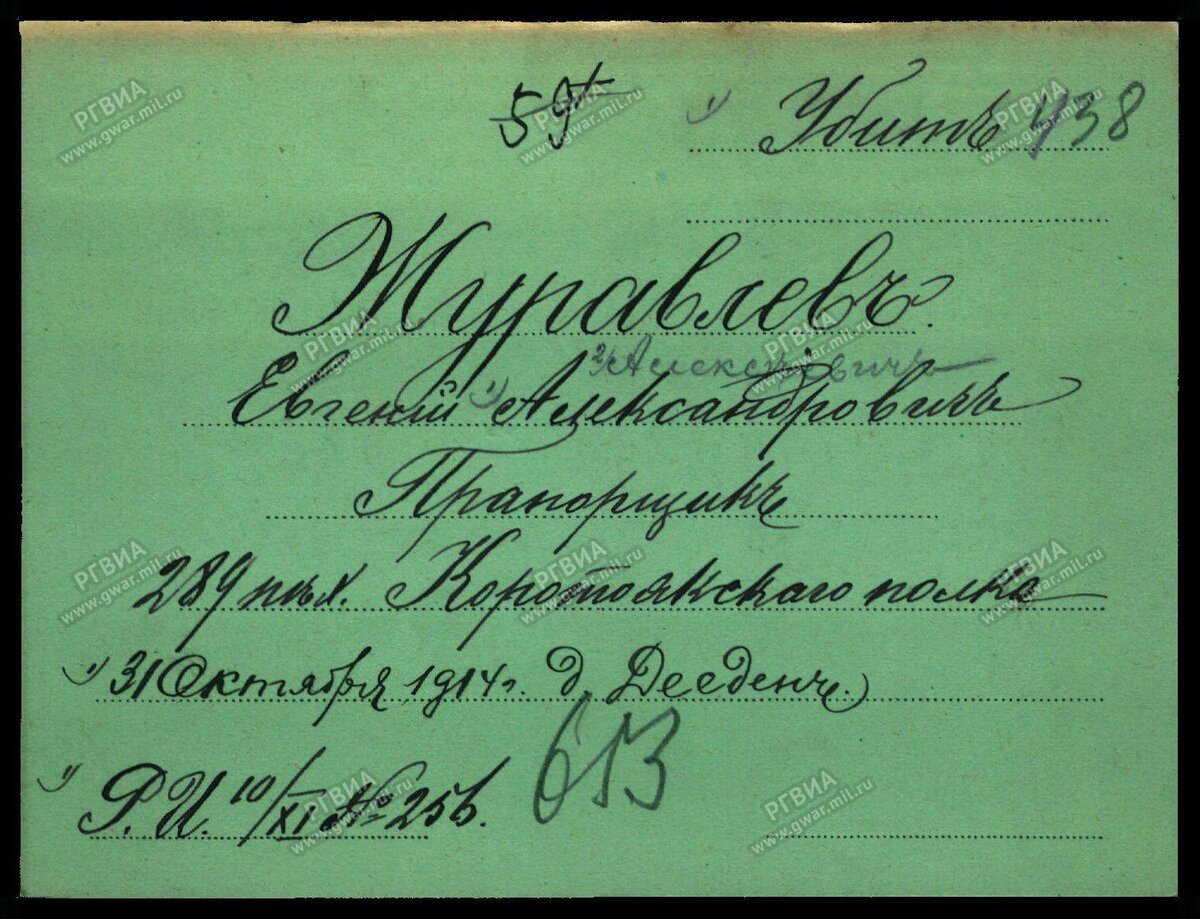 59
1) Убитъ 438
Журавлевъ.
2) Алексѣевичъ
Евгеній 1) Александровичъ
Прапорщикъ
289 пѣх. Коротоякскаго полка
1) 31 Октября 1914 г. д. Дееденъ.
1) Р.И. 10/XI № 256.
613
РГВИА
www.gwar.mil.ru